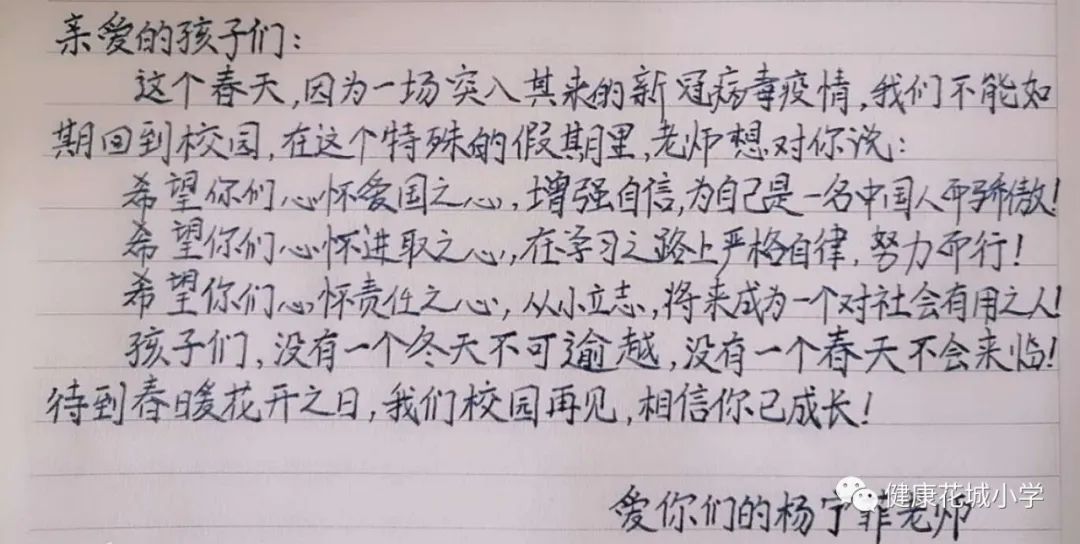 亲爱的孩子们：
这个春天，因为一场突入其来的新冠病毒疫情，我们不能如
期回到校园，在这个特殊的假期里，老师想对你说：
希望你们心怀爱国之心，增强自信，为自己是一名中国人而骄傲！
希望你们心怀进取之心，在学习之路上严格自律，努力而行！
希望你们心怀责任之心，从小立志，将来成为一个对社会有用之人！
孩子们，没有一个冬天不可逾越，没有一个春天不会来临！
待到春暖花开之日，我们校园再见，相信你已成长！
健康花城小学
爱你们的杨宁菲老师